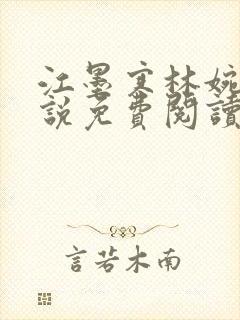 江墨寒林婉
說免費閱讀
言若木南